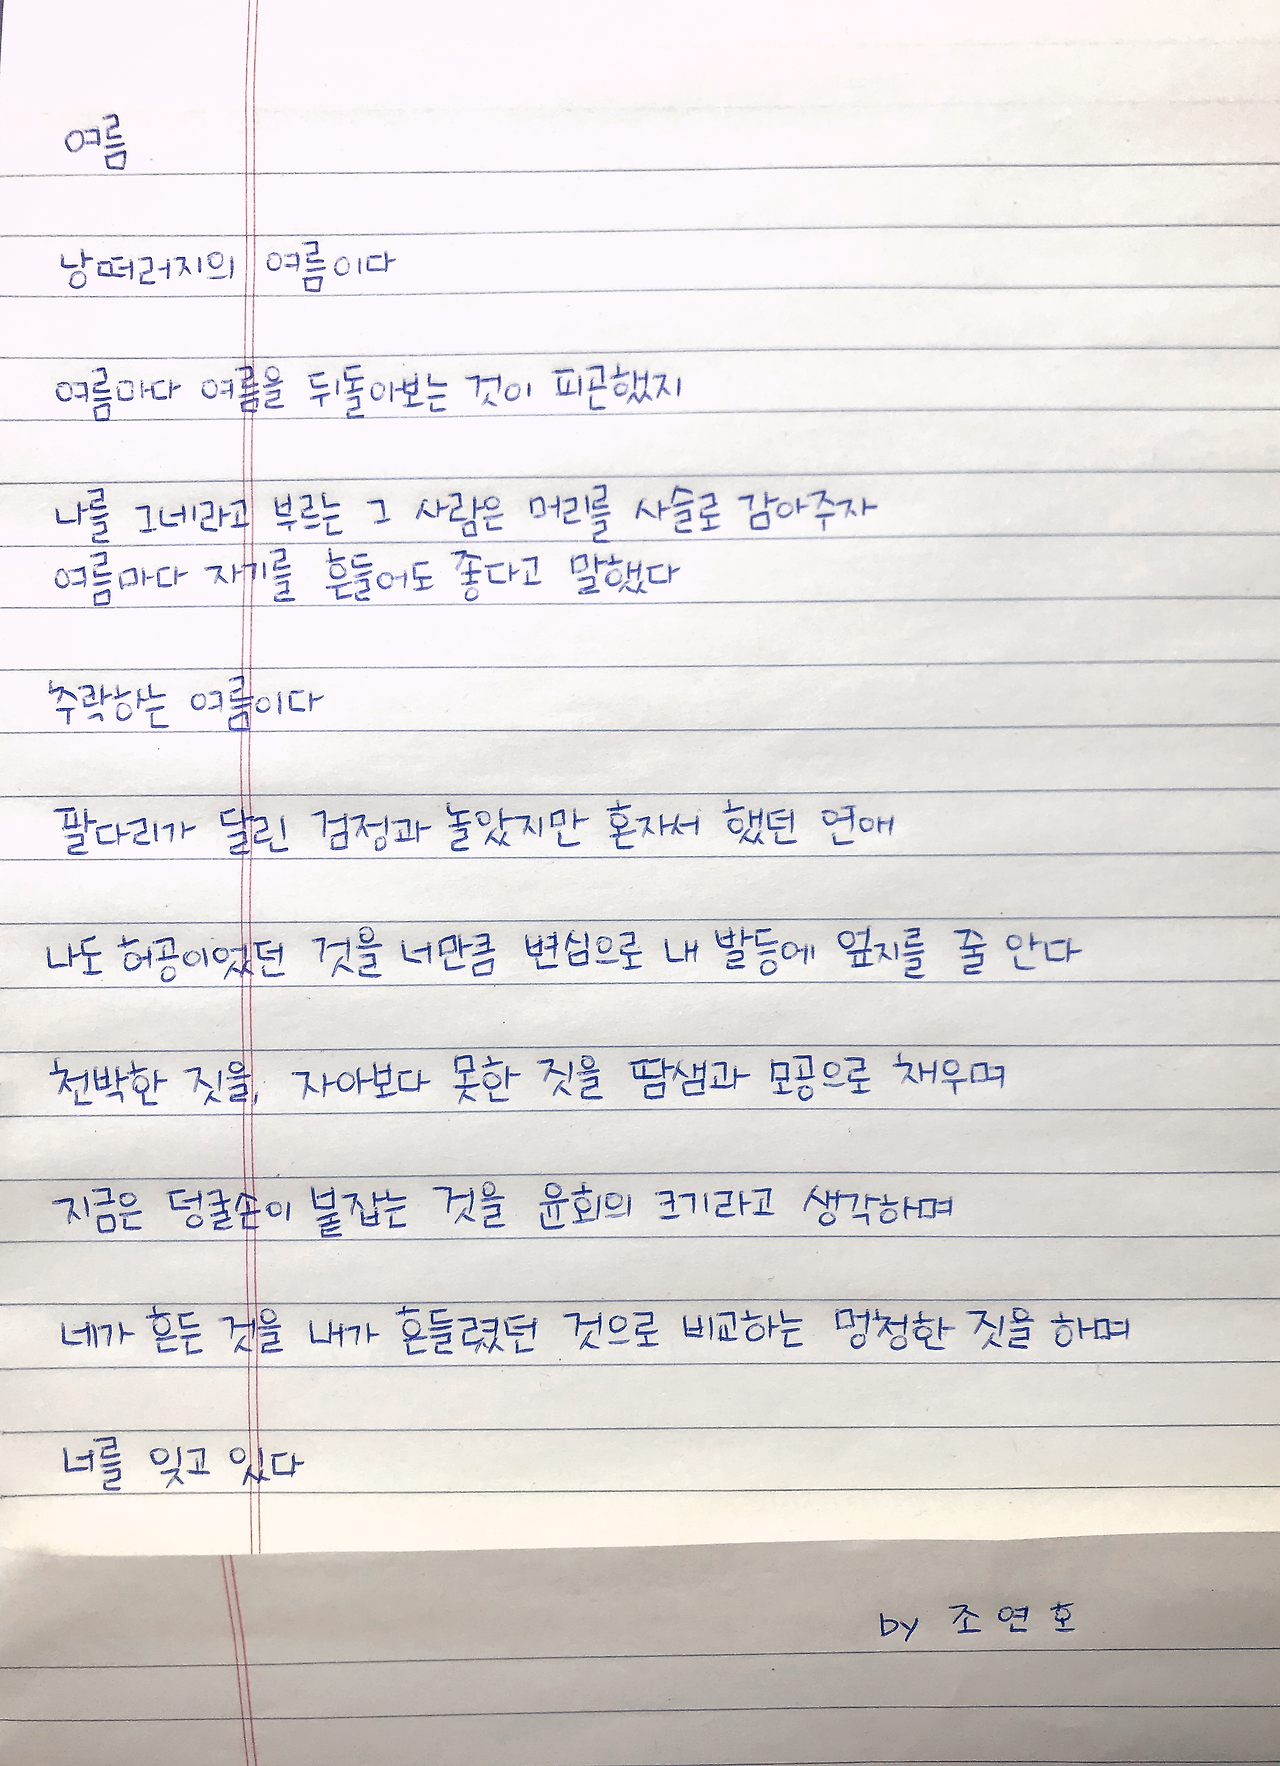 여름
낭떠러지의 여름이다
여름마다 여름을 뒤돌아보는 것이 피곤했지
나를 그네라고 부르는 그 사람은 머리를 사슬로 감아주자
여름마다 자기를 흔들어도 좋다고 말했다
추락하는 여름이다
팔다리가 달린 검정과 놀았지만 혼자서 했던 연애
나도 허공이었던 것을 너만큼 변심으로 내 발등에 엎지를 줄 안다
천박한 짓을, 자아보다 못한 짓을 땀샘과 모공으로 채우며
지금은 덩굴손이 붙잡는 것을 윤회의 크기라고 생각하며
네가 흔든 것을 내가 흔들렸던 것으로 비교하는 멍청한 짓을 하며
너를 잊고 있다
by 조연호